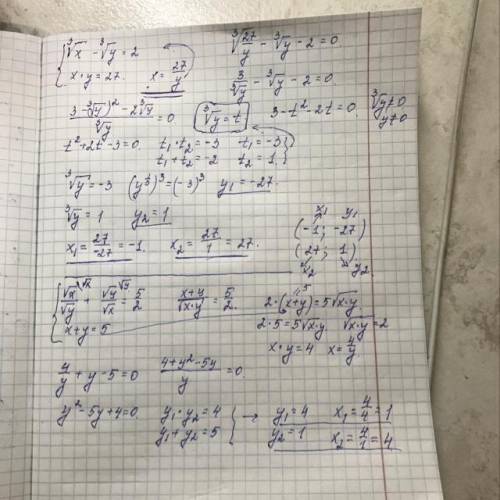 { ∛x - ∛y = 2
x · y = 27. x = 27/y
∛(27/y) - ∛y - 2 = 0.
3/∛y - ∛y - 2 = 0
(3 - (∛y)² - 2∛y)/∛y = 0 ∛y = t 3 - t² - 2t = 0. ∛y ≠ 0 y ≠ 0
t² + 2t - 3 = 0. t₁ · t₂ = -3 t₁ = -3 }
t₁ + t₂ = -2 t₂ = 1. }
∛y = -3 (y^(1/3))³ = (-3)³ y₁ = -27.
∛y = 1 y₂ = 1
x₁ y₁
(-1; -27)
x₁ = 27/-27 = -1. x₂ = 27/1 = 27.
(27; 1)
x₂ y₂
{ √x/√y + √y/√x = 5/2 (x+y)/√(x·y) = 5/2. 2·(x+y) = 5√x·y
x + y = 5 2·5 = 5√x·y √x·y = 2
x · y = 4 x = 4/y
4/y + y - 5 = 0 (4 + y² - 5y)/y = 0.
y² - 5y + 4 = 0 y₁ · y₂ = 4 } → y₁ = 4 x₁ = 4/4 = 1
y₁ + y₂ = 5 } y₂ = 1 x₂ = 4/1 = 4